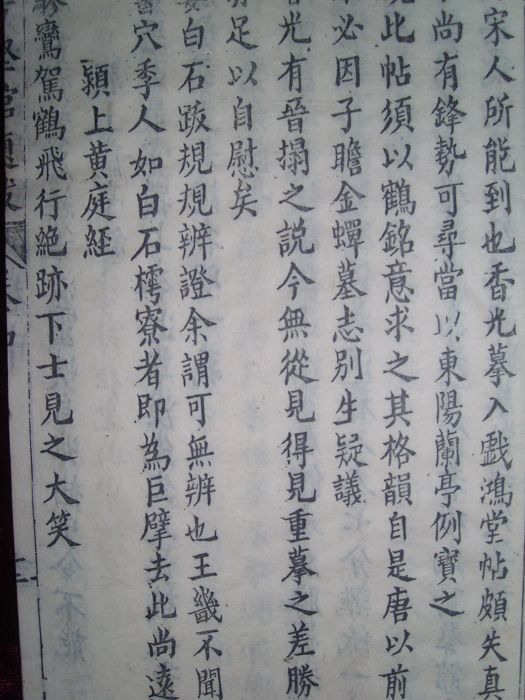 宋人所能到也香光摹入戲鴻堂帖頗失真
尚有鋒勢可尋當以東陽蘭亭例寶之
此帖須以鶴銘意求之其格韻自是唐以前
必因子瞻金蟬墓志別生疑議
光有晉搨之説今無從見得見重摹之差勝
足以自慰矣
白石跋規規辨證余謂可無辨也王畿不聞
穴季人如白石樗寮者即為巨擘去此尚遠
潁上黄庭経
鸞駕鶴飛行絶跡下士見之大笑